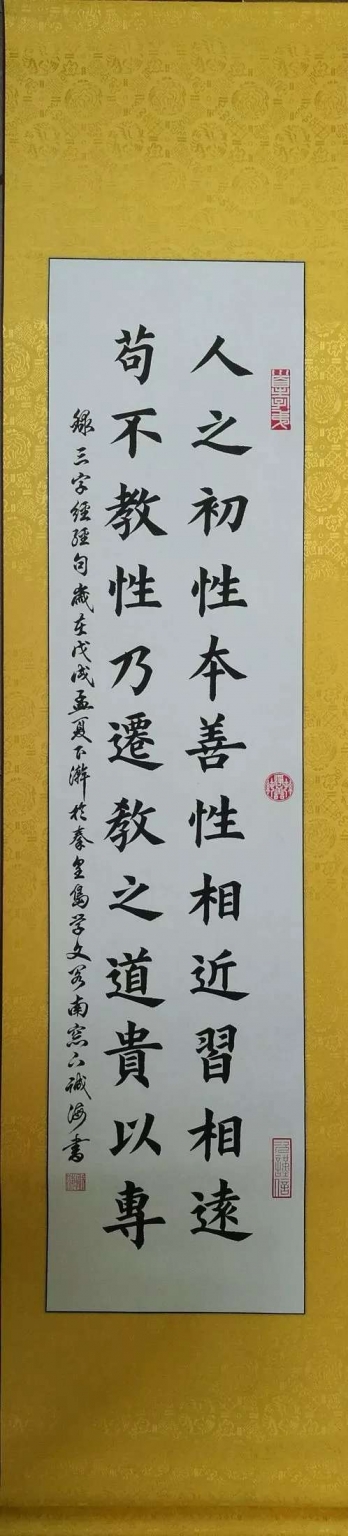 人之初性本善性相近習相遠
苟不教性乃遷教之道貴以專
錄三字經經句歲在戊戌孟夏下澣於秦皇島学文客南窓下誠海書